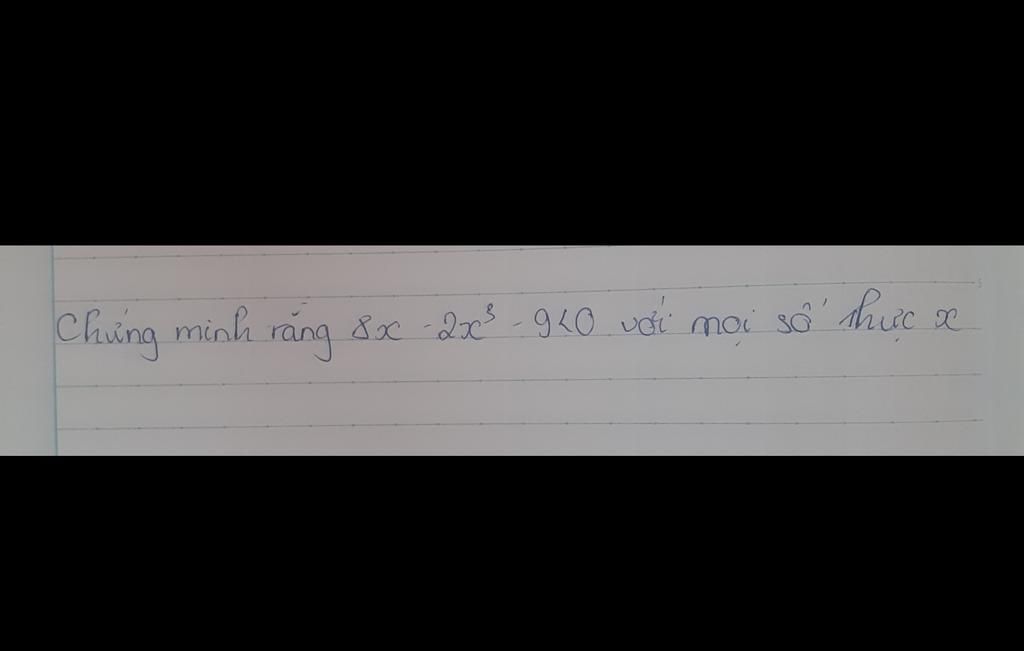 Chứng minh rằng 8x - 2x³ - 9 < 0 với mọi số thực x